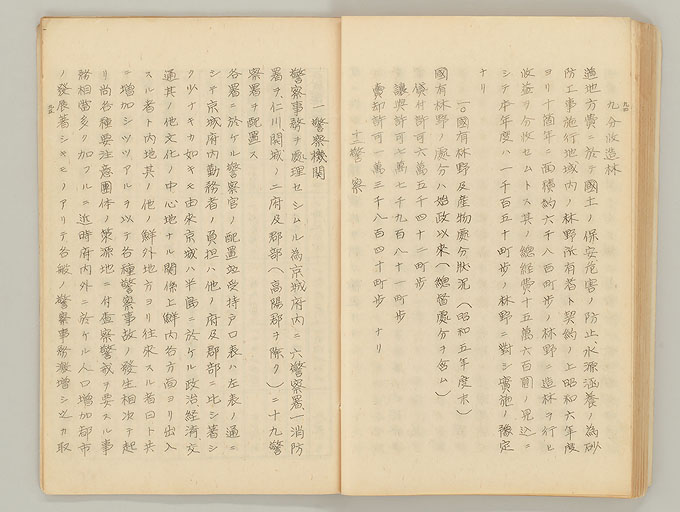 九分收造林
道地方費ニ於テ國土ノ保安危害ノ防止、水源涵養ノ為砂
防工事施行地域内ノ林野所有者ト契約ノ上昭和六年度
ヨリ十箇年ニ面積約六千八百町歩ノ林野ニ造林ヲ行ヒ
收益ヲ分收セムトス其ノ總経費十五萬六百圓ノ見込ニ
シテ本年度ハ一千百五十町歩ノ林野ニ對シ實施ノ豫定
ナリ
一〇國有林野及産物處分狀況(昭和五年度末)
國有林野ノ處分ハ始政以來(總督處分ヲ含ム)
貸付許可六萬五千四十二町歩
讓與許可七萬七千九百八十一町歩
賣却許可一萬三千八百四十町歩 ナリ
十三警察
一警察機関
警察事務ヲ處理セシムル為京城府内ニ六警察署一消防
署ヲ、仁川開城ノ二府及郡部(高陽郡ヲ除ク)ニ十九警
察署ヲ配置ス
各署ニ於ケル警察官ノ配置竝受持戸口表ハ左表ノ通ニ
シテ京城府内勤務者ノ負担ハ他ノ府及郡部ニ比シ著シ
ク少ナキカ如キモ由來京城ハ半島ニ於ケル政治経済交
通其ノ他文化ノ中心地ナル関係上鮮内各方面ヨリ出入
スル者ト内地其ノ他ノ鮮外地方ヨリ往來スル者日ト共
ニ増加シツツアルヲ以テ各種警察事故ノ發生相次テ起
リ尚各種要注意團体ノ策源地ニ付査察警戒ヲ要スル事
務相當多ク加フルニ近時府内外ニ於ケル人口増加都市
ノ發展著シキモノアリテ各般ノ警察事務激増シ之カ取